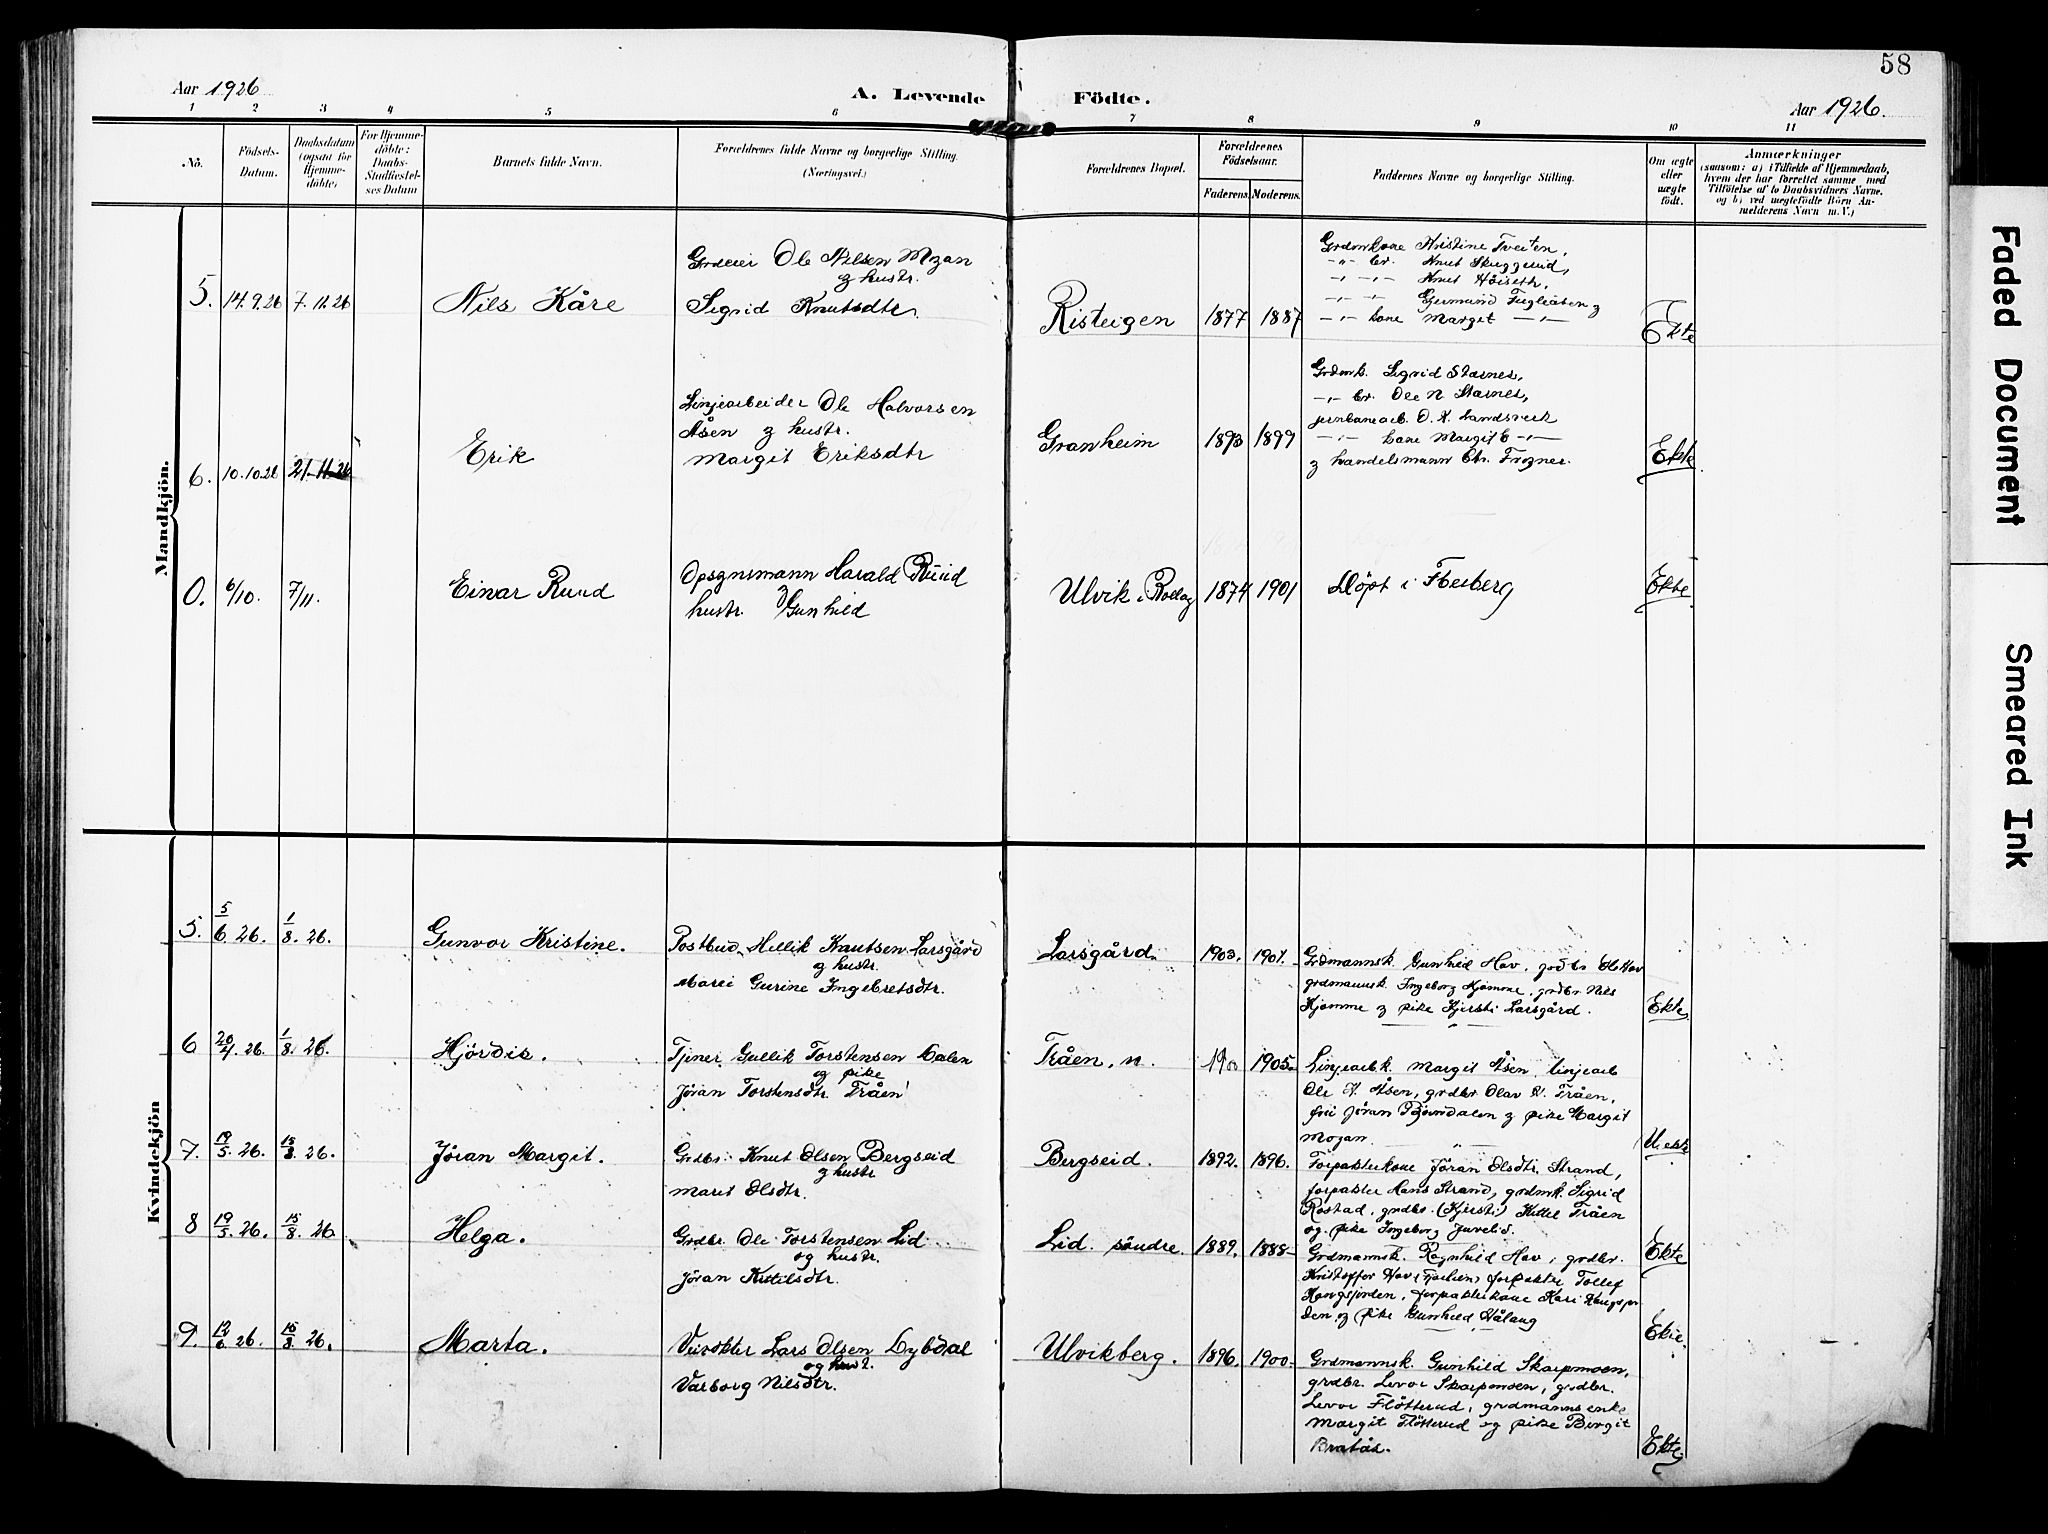 58
Aar 1926
A. Levende Födte.
Aar 1926.
1 2 3 4 5 6 7 8 9 10 11
No.
Födsels-
Datum.
Daabsdatum
(ogsaa for
Hjemme-
döbte)
For Hjemme-
döbte:
Daabs-
Stadfæstel-
ses Datum
Barnets fulde Navn.
Forældrenes fulde Navne og borgerlige Stilling.
(Næringsvei.)
Forældrenes Bopæl.
Forældrenes
Födselsaar.
Faderens. Moderens.
Faddernes Navne og borgerlige Stilling.
Om ægte
eller
uægte
födt.
Anmærkninger
(saasom: a) i Tilfælde af Hjemmedaab,
hvem der har forrettet samme med
Tilföielse af to Daabsvidners Navne,
og b) ved uægtefödte Börn An-
melderens Navn m. V.)
Mandkjön.
5. 14.9.26 7.11.26 Nils Kåre
Grdeier Ole Nilsen Mogan
og hustr.
Sigrid Knutsdtr.
Risteigen 1877 1887
Grdmkone Kristine Tveiten,
-"- br. Knut Skuggerud,
-"- -"- Knut Höiseth,
-"- -"- Germund Fugleåsen og
-"- kone Marget -"-
Ekte
6. 10.10.26 21.11.26 Erik
Linjearbeider Ole Halvorsen
Åsen og hustr.
Margit Eriksdtr
Granheim 1893 1899
Grdmk. Sigrid Stærnes,
-"- br. Ole N Stærnes,
jernbanearb. O. K. Landsverk
-"- kone Margit -"-
og handelsmann Chr. Frogner.
Ekte
0. 6/10. 7/11. Einar Ruud
Opsynsmann Harald Ruud
og
hustr. Gunhild
Ulvik i Rollag 1874 1901
Döpt i Flesberg
Ekte
Kvindekjön
5. 5/6. 26. 1/8. 26. Gunvor Kristine.
Postbud Hellik Knutsen Larsgård
og hustr.
Marei Gurine Ingebretsdtr.
Larsgård. 1903. 1901.
Grdmannsk. Gunhild Hav, grdbr Hav
grdmannsk. Ingeborg Kjömme, grdbr. Nils
Kjömme og pike Kjersti Larsgård.
Ekte
6 20/4. 26. 1/8. 26. Hjördis.
Tjener Gullik Torstensen Dalen
og pike
Jöran Torstensdtr. Tråen
Tråen, n. 1900 1905
Linjearb.k. Margit Åsen, linjearb
Ole H. Åsen, grdbr Olav Tråen,
frü Jöran Björndalen og pike Margit
Mogan.
Uekte
7. 19/5. 26. 15/8. 26. Jöran Margit.
Grdbr. Knut Olsen Bergseid
og hustr
Marit Olsdtr.
Bergseid. 1892. 1896.
Forpakterkone Jöran Olsdtr. Strand,
forpakter Hans Strand, grdmk. Sigrid
Rostad, grdbr. (Kjersti) Kittel Tråen
og pike Ingeborg Juvelid.
Ekte
8 19/5. 26. 15/8. 26 Helga.
Grdbr. Ole Torstensen Lid
og hustr.
Jöran Kittilsdtr.
Lid söndre. 1889. 1888
Grdmannsk. Ragnhild Hav, grdbr.
Kristoffer Hav, forpakter Tollef
Kongsjorden, forpakterkone Kari Kongsjor-
den, og pike Gunhild Hålang
Ekte.
9. 12/6. 26. 15/8. 26. Marta.
Veivokter Lars Olsen Lybdal
og hust.
Valborg Nilsdtr.
Ulvikberg. 1896. 1900
Grdmannsk. Gunhild Skarpmoen,
grdbr. Levor Skarpmoen, grdbr.
Levor Flötterud, grdmanns enke
Margit Flötterud og pike Birgit
Bratås.
Ekte
Faded Document
Smeared Ink